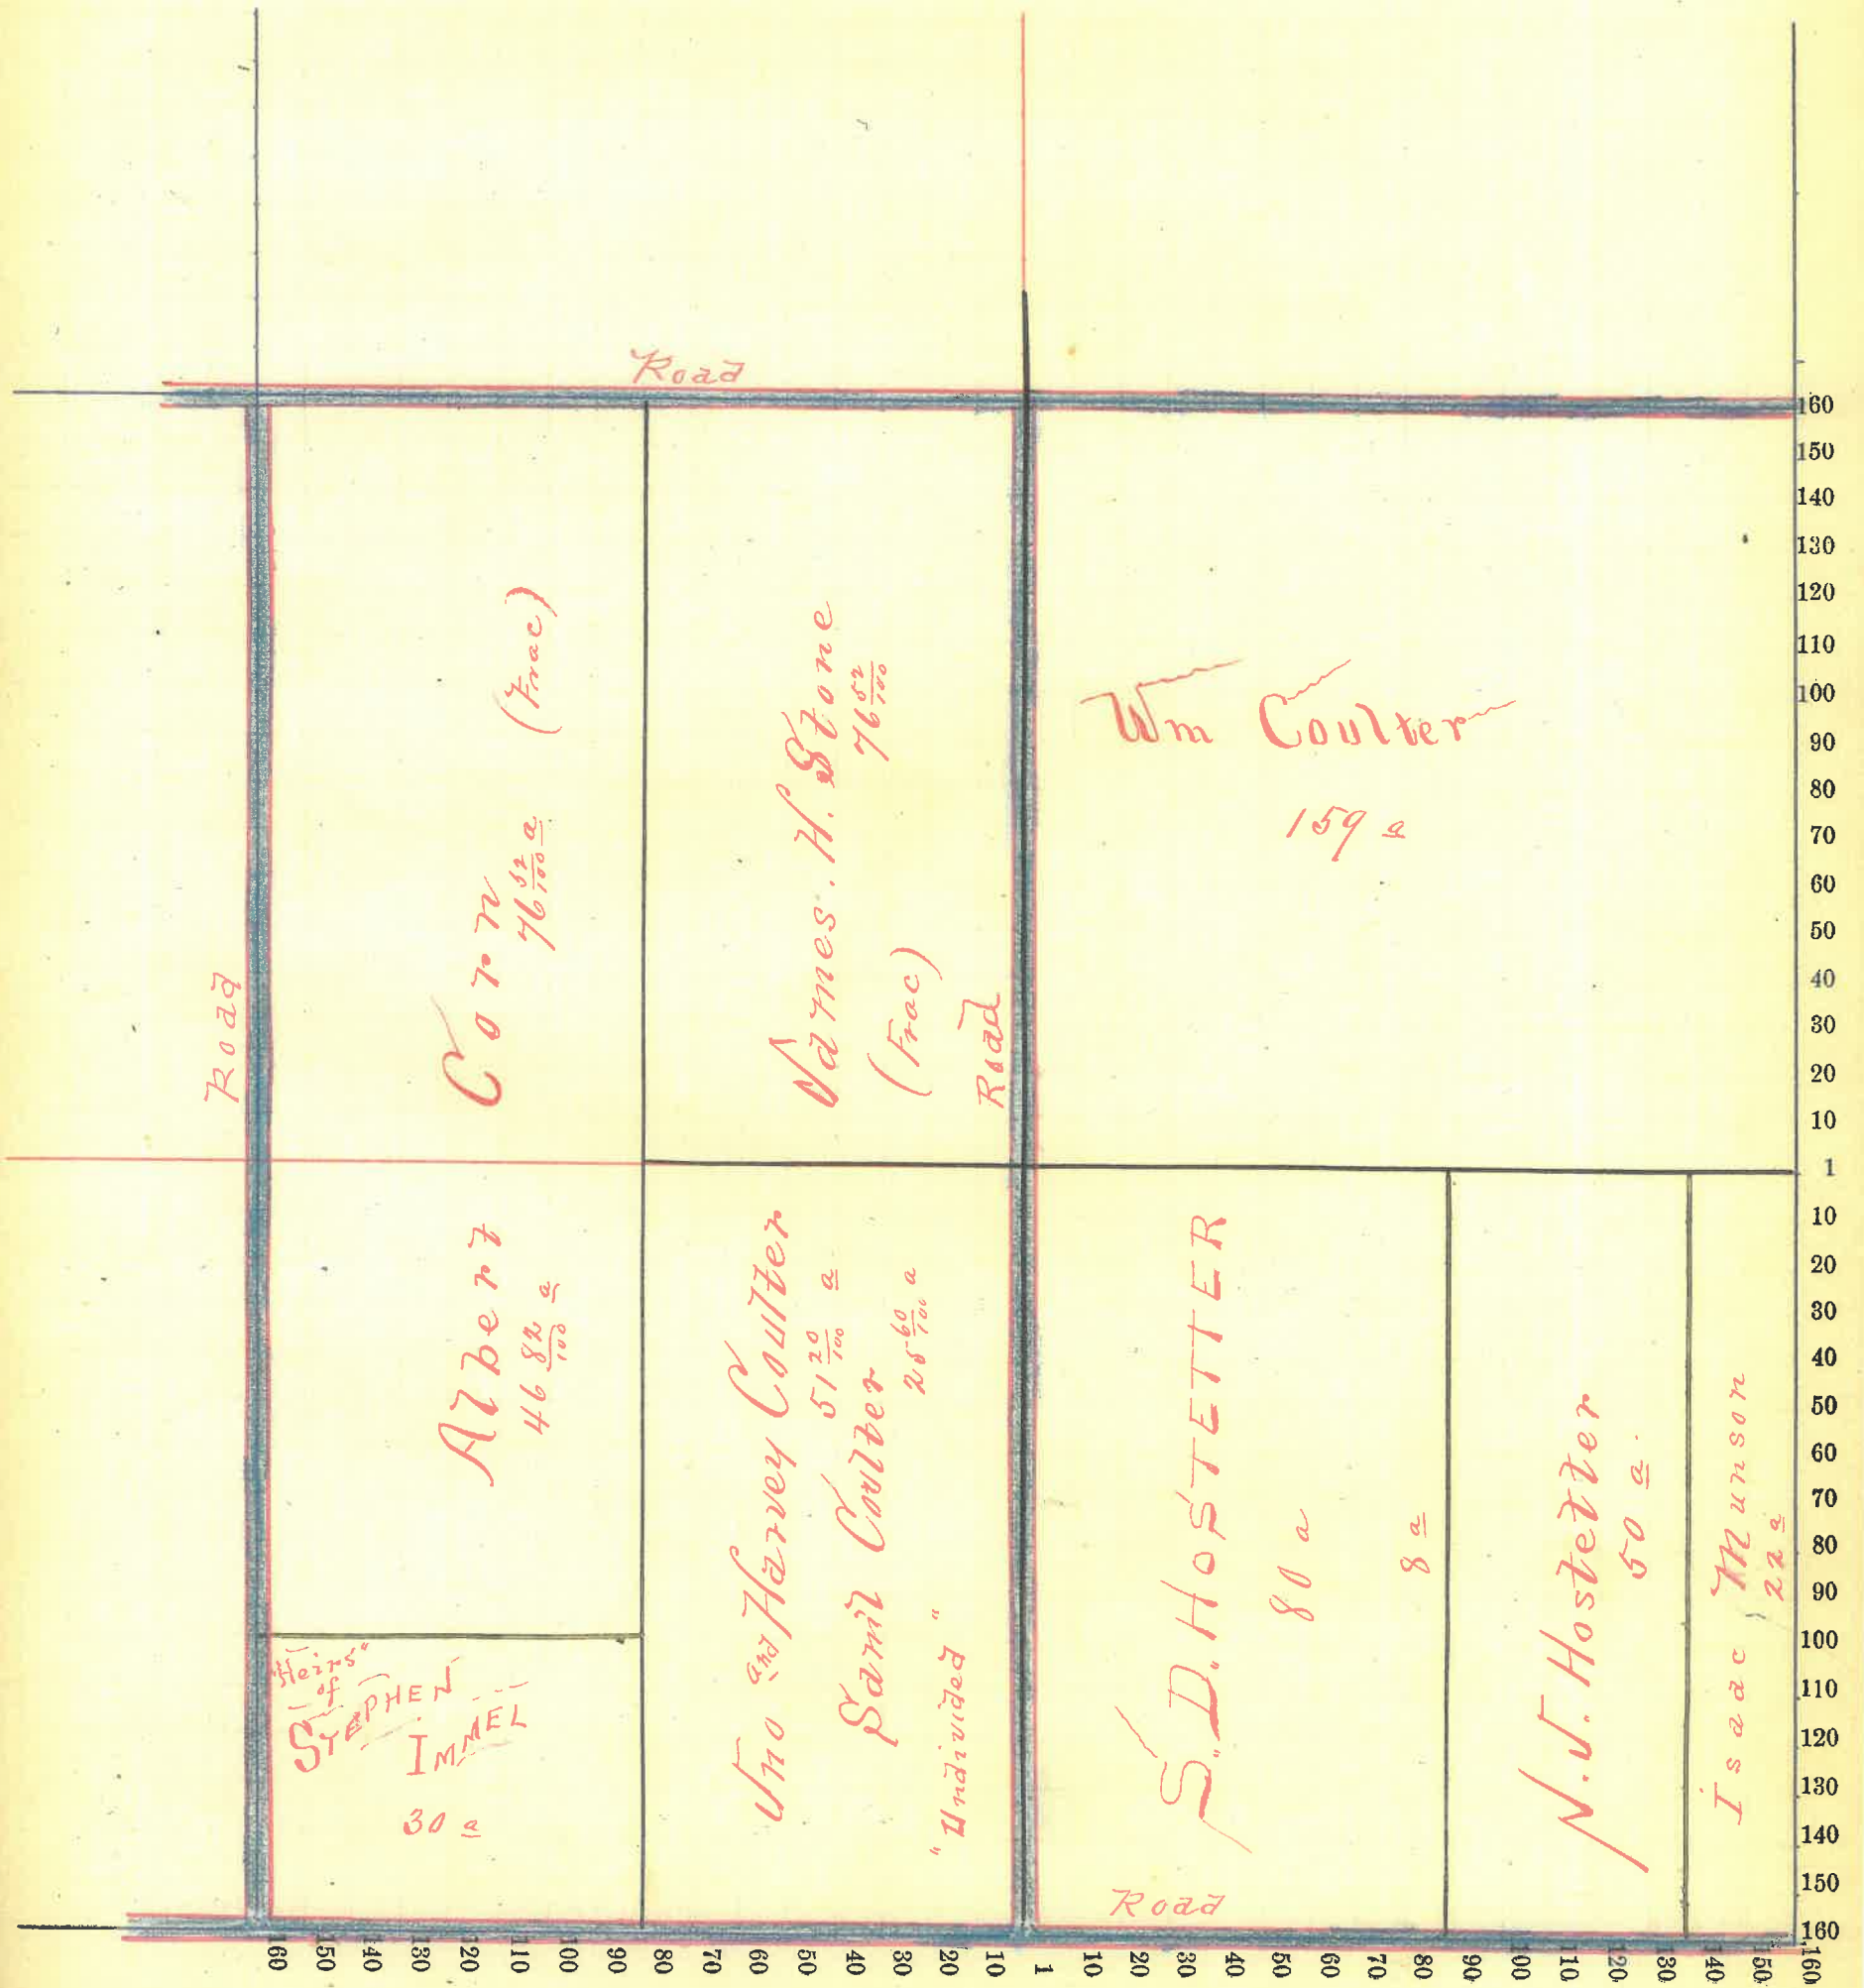 Road
Road
Corn
76 52/100 a
(Frac)
James. H. Stone
76 52/100
(Frac)
Road
Wm Coulter
159 a
Albert
46 82/100 a
"Heirs"
of
STEPHEN
IMMEL
30 a
Jno and Harvey Coulter
51 20/100 a
Saml Coulter
25 60/100 a
"Undivided"
S. D. HOSTETTER
80 a
8 a
N. J. Hostetter
50 a.
Isaac Munson
22 a
Road
160
150
140
130
120
110
100
90
80
70
60
50
40
30
20
10
1
10
20
30
40
50
60
70
80
90
100
110
120
130
140
150
160
160 150 140 130 120 110 100 90 80 70 60 50 40 30 20 10 1 10 20 30 40 50 60 70 80 90 00 10 120 30 40 50 160